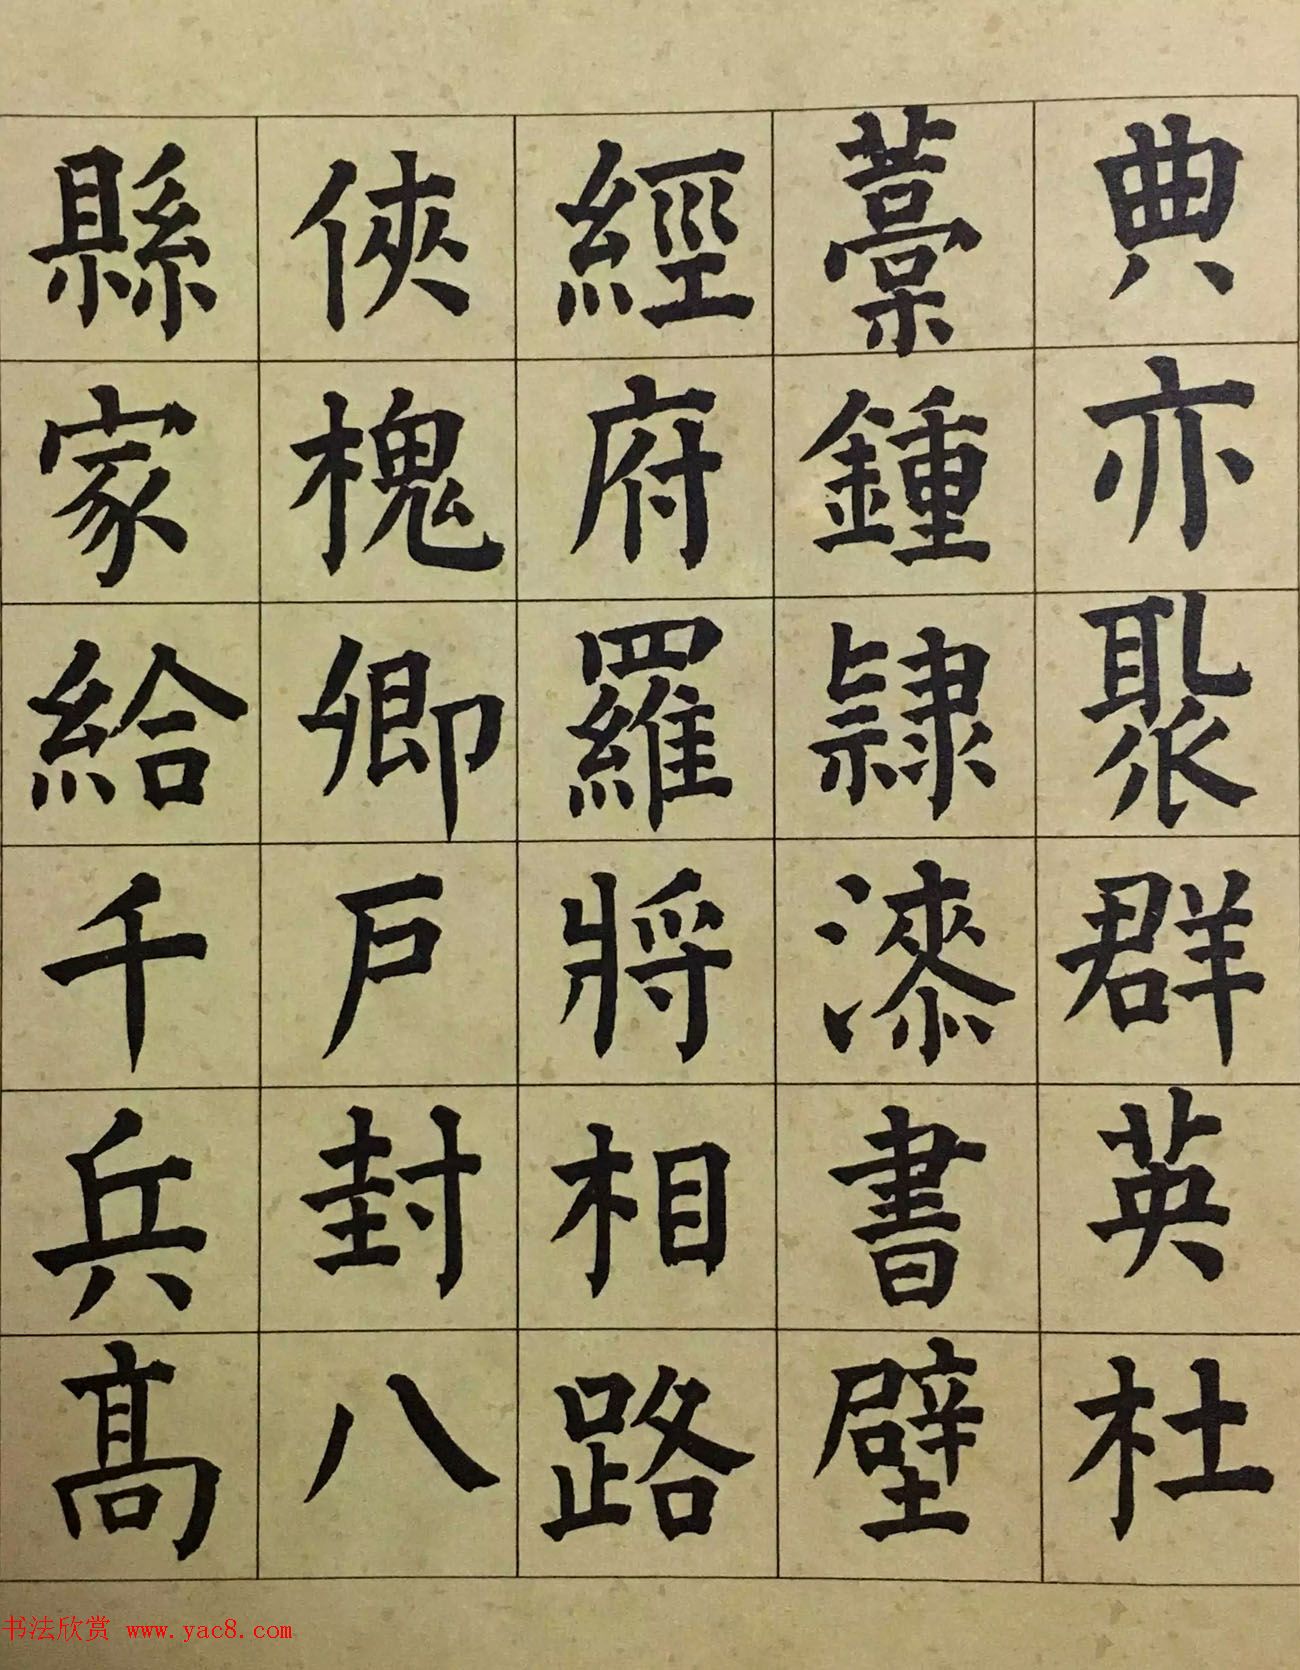 典亦聚群英杜
藁鍾隸漆書壁
經府羅將相路
俠槐卿戶封八
縣家給千兵高
书法欣赏 www.yac8.com